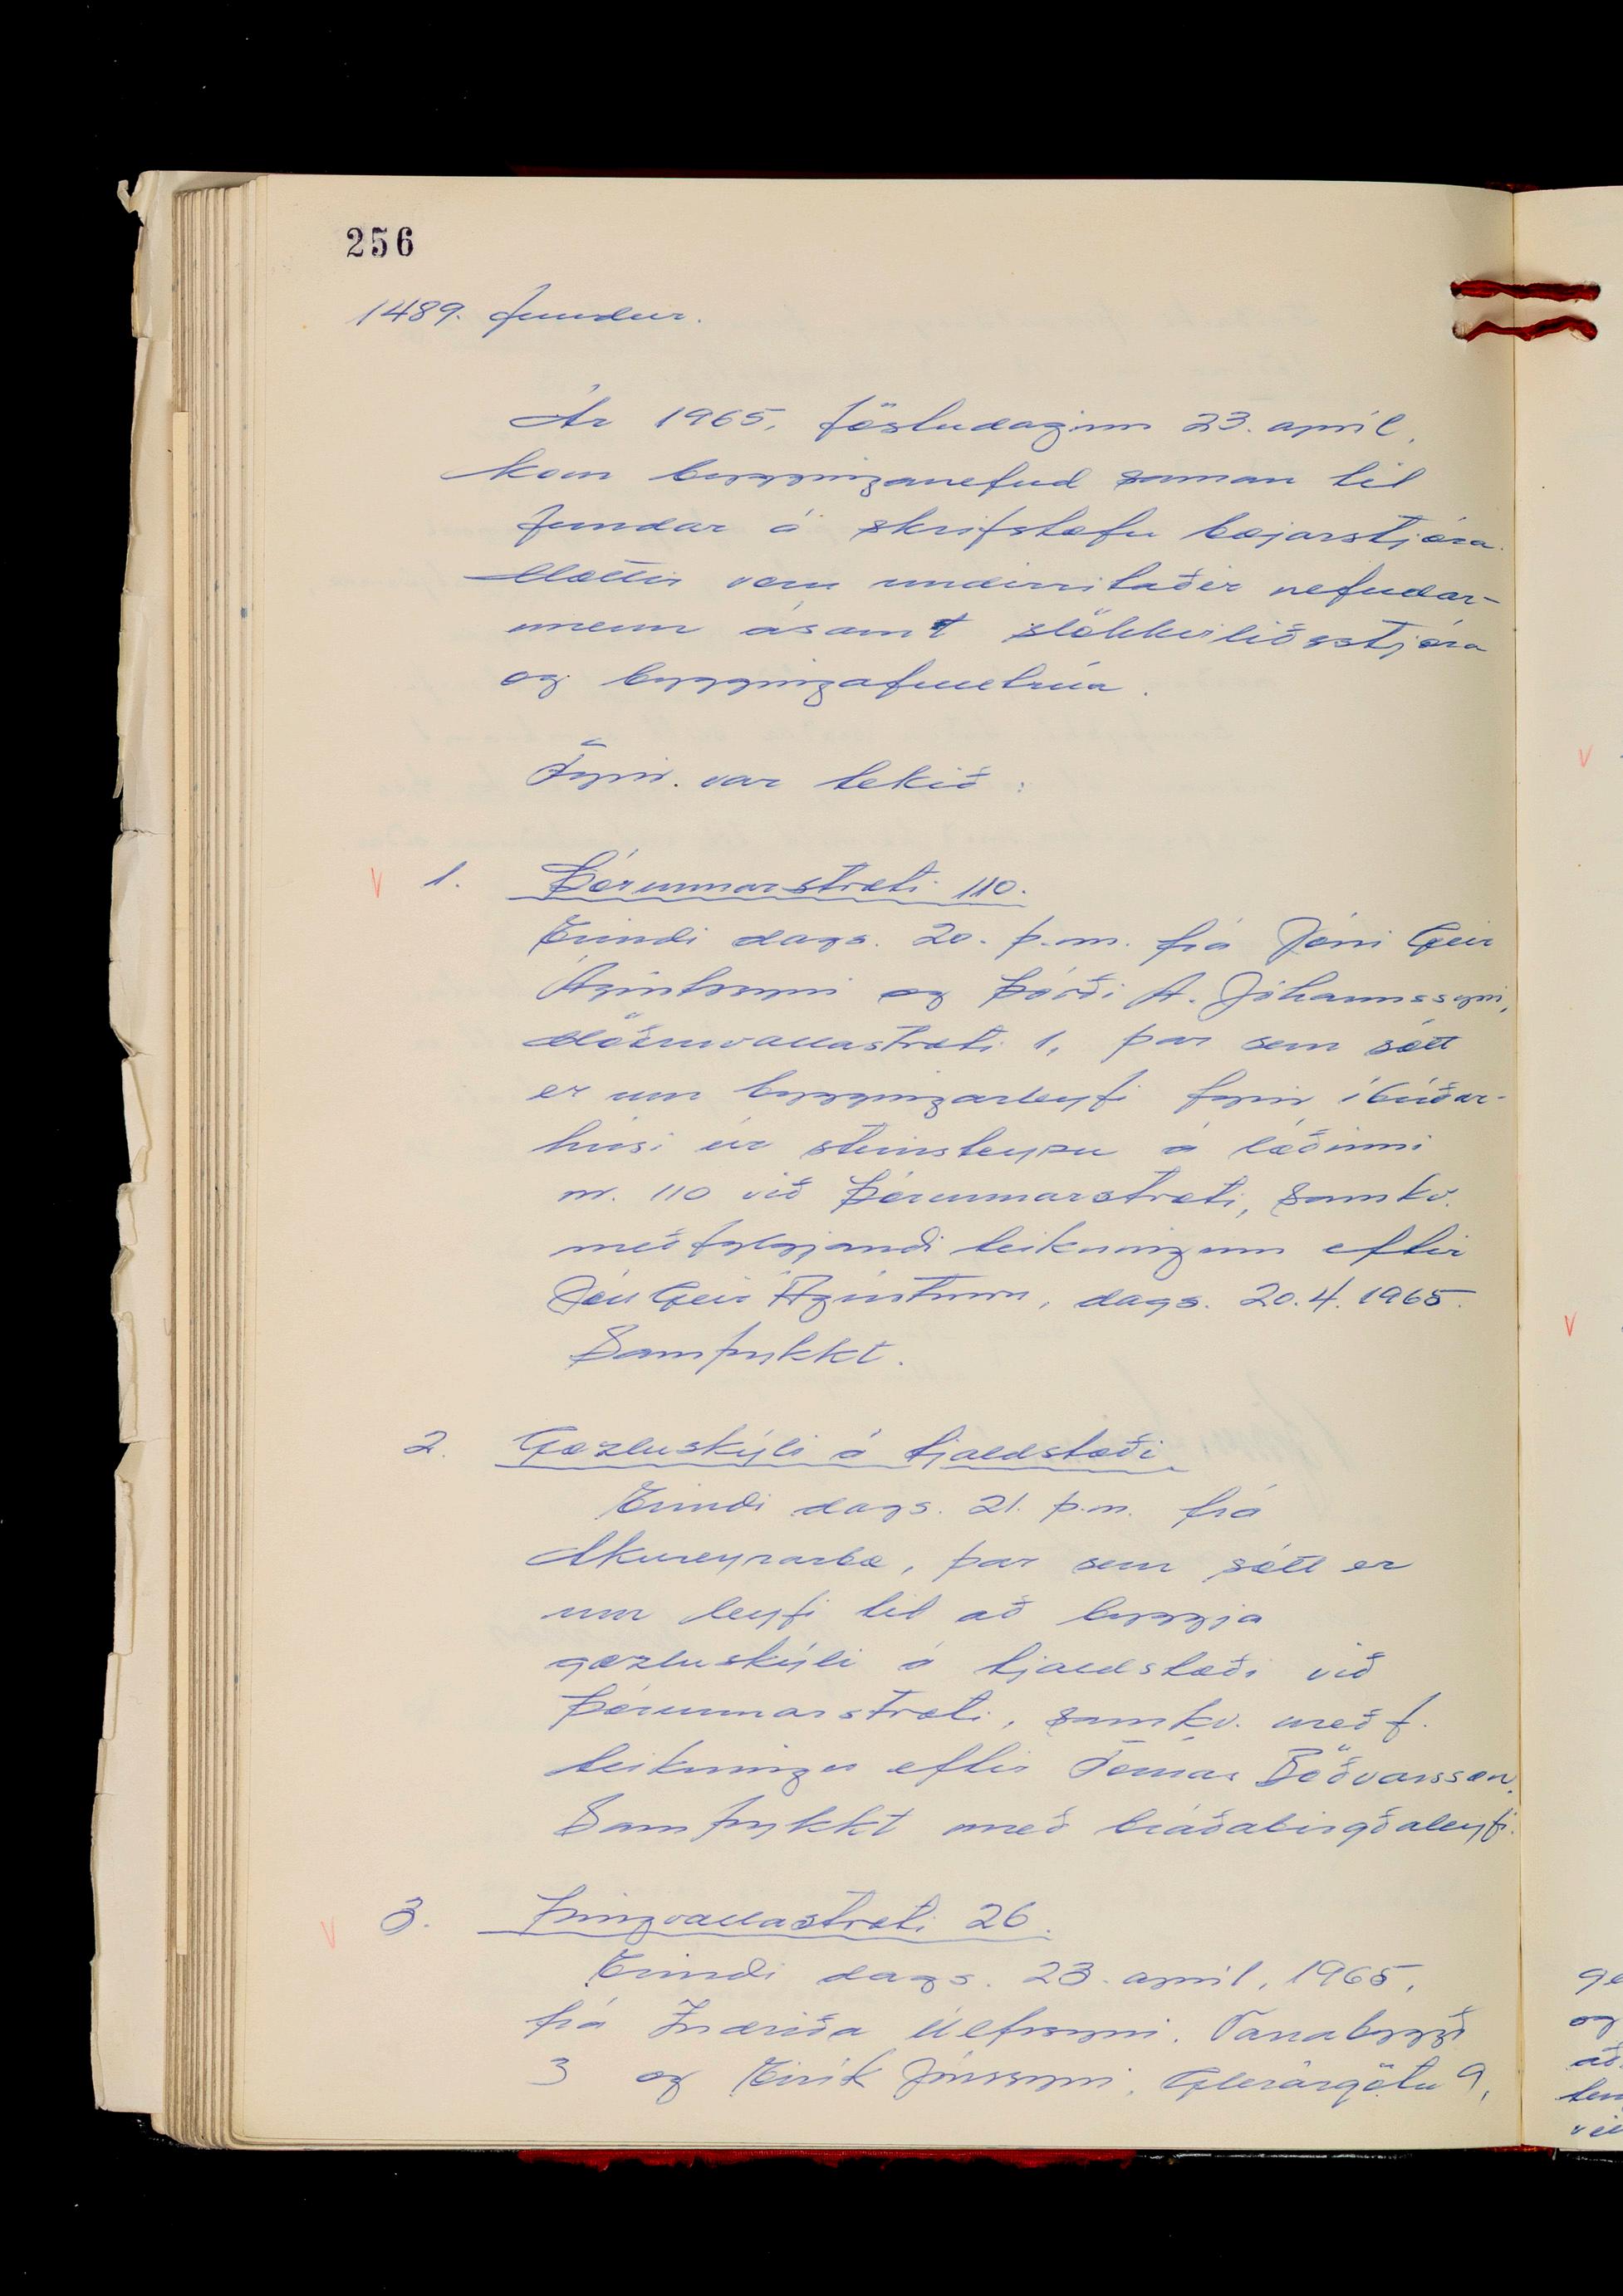 256
1489. fundur.
Ár 1965, föstudaginn 23. apríl,
kom bygginganefnd saman til
fundar á skrifstofu bæjarstjóra.
Mættir voru undirritaðir nefndar-
menn ásamt slökkviliðsstjóra
og byggingafulltrúa.
Fyrir var tekið:
V 1. Þórunnarstræti 110.
Erindi dags. 20. þ.m. frá Jóni Geir
Ágústssyni og Þórði A. Jóhannssyni,
Möðruvallastræti 1, þar sem sótt
er um byggingarleyfi fyrir íbúðar-
húsi úr steinsteypu á lóðinni
nr. 110 við Þórunnarstræti, samkv.
meðfylgjandi teikningum eftir
Jón Geir Ágústsson, dags. 20.4.1965.
Samþykkt.
2. Gæzluskýli á tjaldstæði
Erindi dags. 21. þ.m. frá
Akureyrarbæ, þar sem sótt er
um leyfi til að byggja
gæzluskýli á tjaldstæði við
Þórunnarstræti, samkv. meðf.
teikningu eftir Tómas Böðvarsson.
Samþykkt með bráðabirgðaleyfi.
V 3. Þingvallastræti 26.
Erindi dags. 23. apríl, 1965,
frá Indriða Úlfssyni, Vanabyggð
3 og Eirík Jónssyni, Glerárgötu 9,
V
V
og